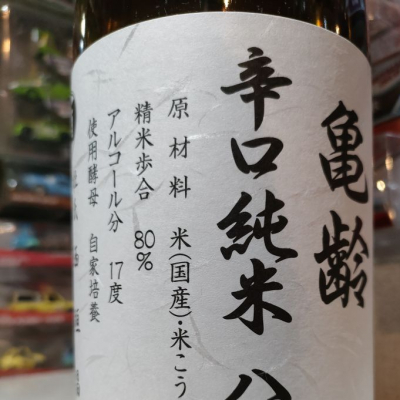 亀齢
辛口純米 八
原材料 米(国産)・米こう
精米歩合 80%
アルコール分 17度
使用酵母 自家培養